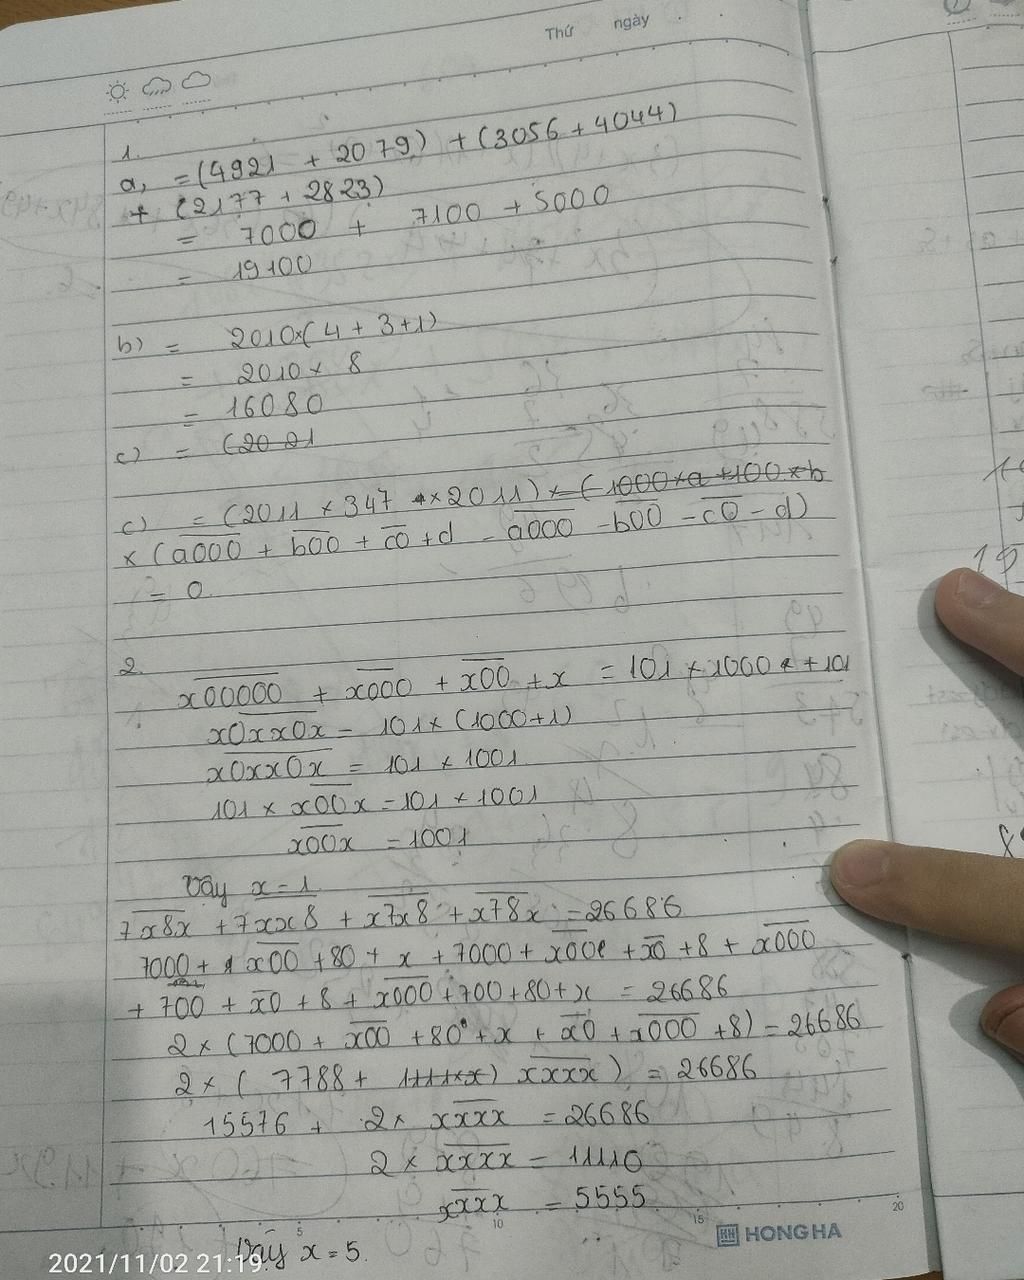 Thứ ngày
1.
a, = (4921 + 2079) + (3056 + 4044)
+ (2177 + 2823)
= 7000 + 7100 + 5000
= 19100
b) = 2010×(4 + 3+1)
= 2010 × 8
= 16080
c) = (2021
c) = (2011 × 347 × 2011) × (1000×a +100 ×b
× (a000 + b00 + c0 + d - a000 - b00 - c0 - d)
= 0
2.
x00000 + x000 + x00 + x = 101 × 1000 + 101
x0xx0x = 101 × (1000+1)
x0xx0x = 101 × 1001
101 × x00x = 101 × 1001
x00x = 1001
Vậy x = 1
7x8x + 7xx8 + x7x8 + x78x = 26686
7000 + x00 + 80 + x + 7000 + x00 + x0 + 8 + x000
+ 700 + x0 + 8 + x000 + 700 + 80 + x = 26686
2 × (7000 + x00 + 80 + x + x0 + x000 + 8) = 26686
2 × ( 7788 + xxxx ) = 26686
15576 + 2 × xxxx = 26686
2 × xxxx = 11110
xxxx = 5555
5 10 15 20
HONG HA
Vậy x = 5.
2021/11/02 21:19